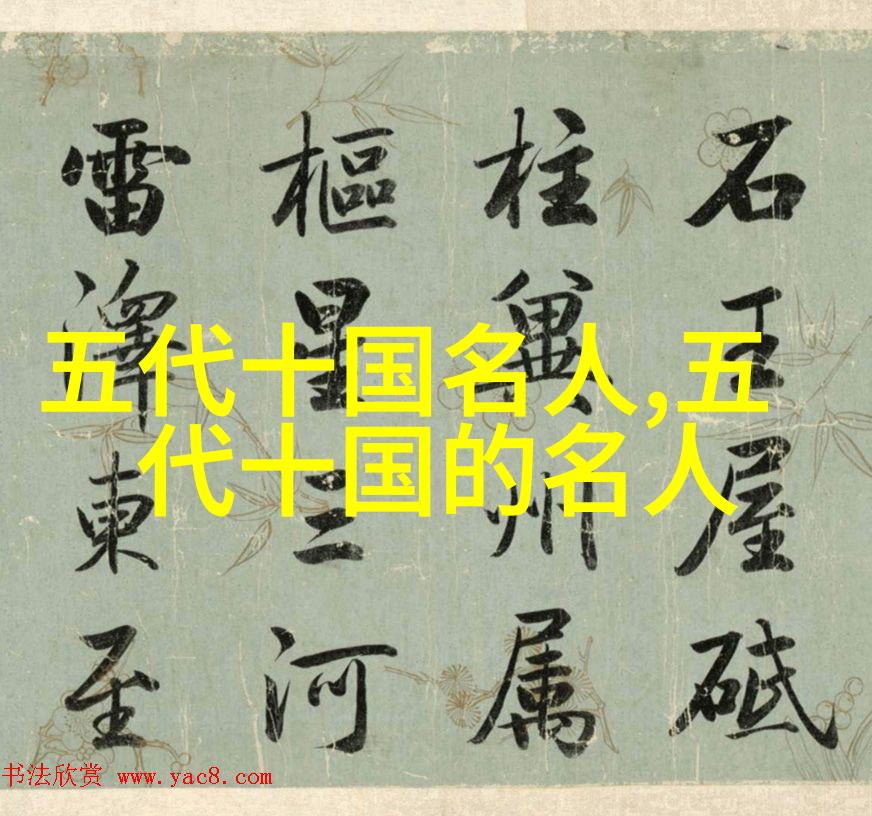 石王屋砥
柱冀州属
樞星三河
雷澤東至
五代十国名人,五
代十国的名人
书法欣赏 www.yac8.com